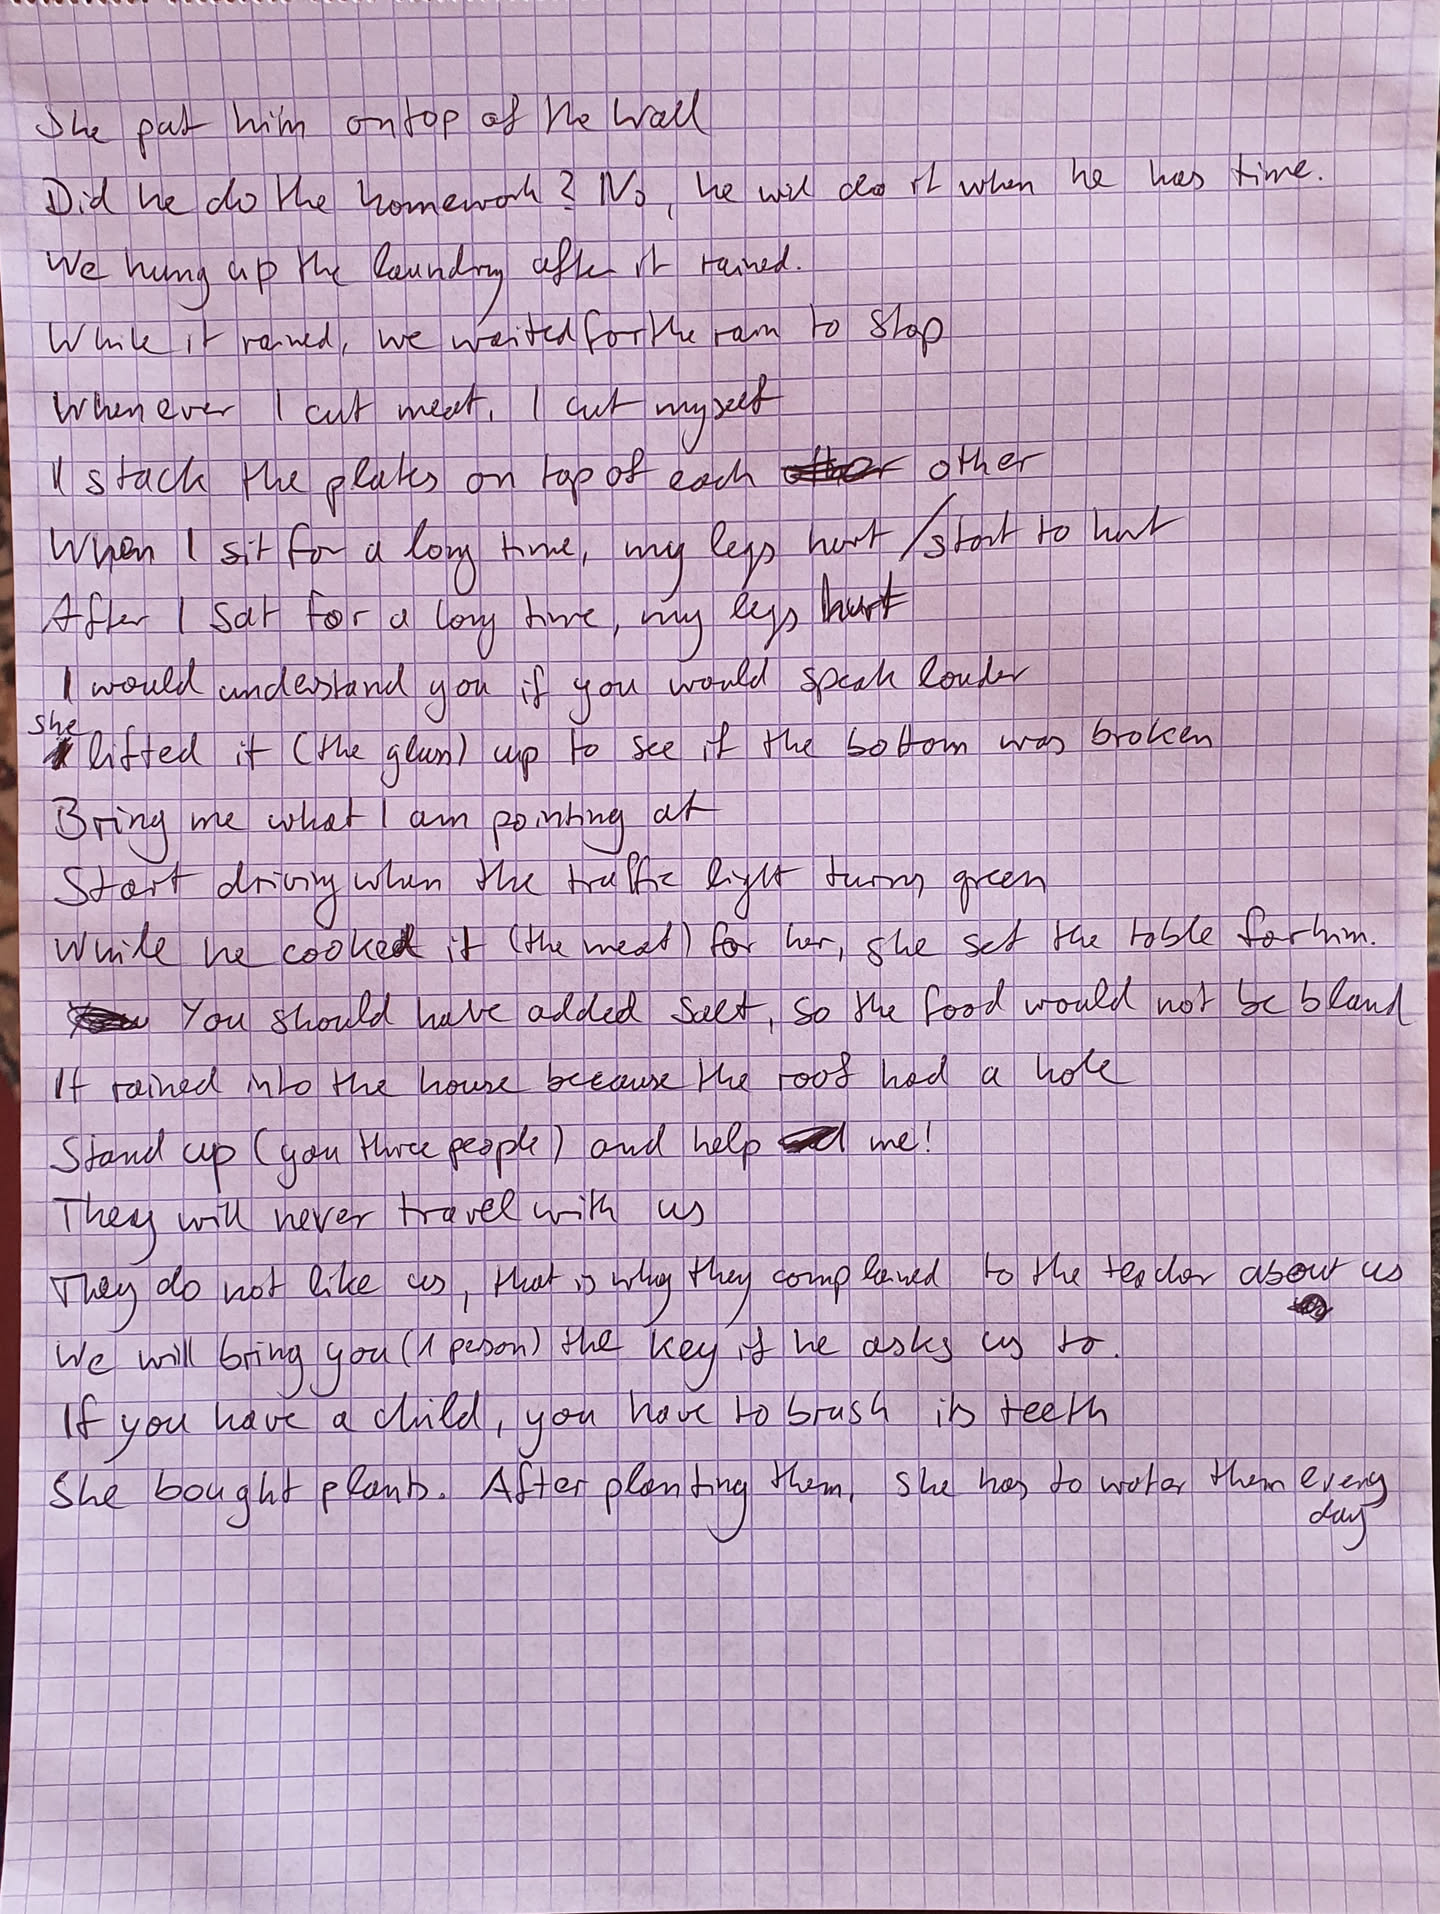 She put him on top of the wall
Did he do the homework? No, he will do it when he has time.
We hung up the laundry after it rained.
While it rained, we waited for the rain to stop
Whenever I cut meat, I cut myself
I stack the plates on top of each other
When I sit for a long time, my legs hurt / start to hurt
After I sat for a long time, my legs hurt
I would understand you if you would speak louder
she lifted it (the glass) up to see if the bottom was broken
Bring me what I am pointing at
Start driving when the traffic light turns green
While he cooked it (the meat) for her, she set the table for him.
You should have added salt, so the food would not be bland
It rained into the house because the roof had a hole
Stand up (you three people) and help me!
They will never travel with us
They do not like us, that is why they complained to the teacher about us
We will bring you (1 person) the key if he asks us to.
If you have a child, you have to brush its teeth
She bought plants. After planting them, she has to water them every
day